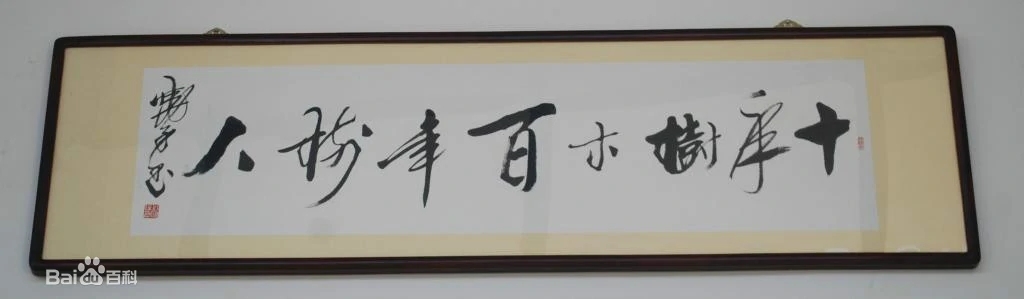 十年樹木百年樹人
Baidu百科